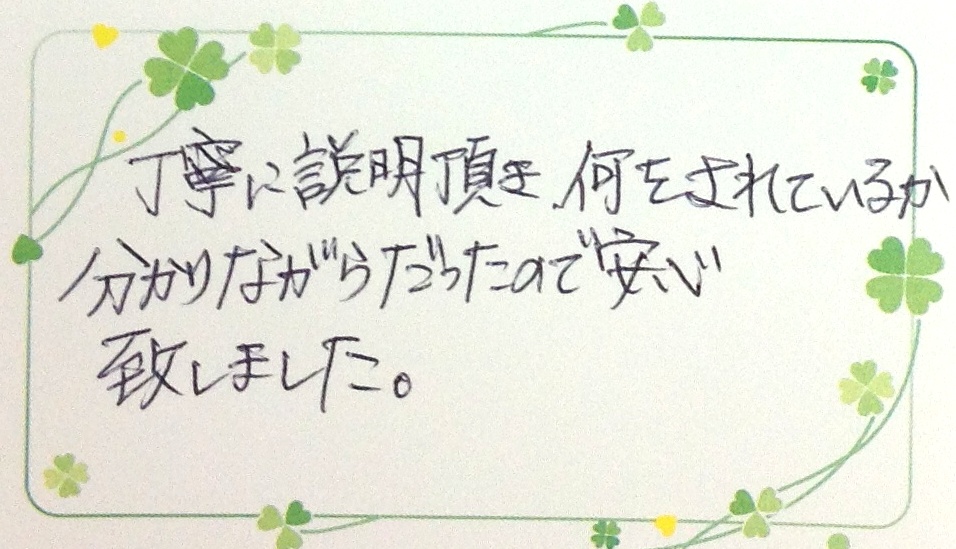 丁寧に説明頂き、何をされているか
分かりながらだったので安心
致しました。